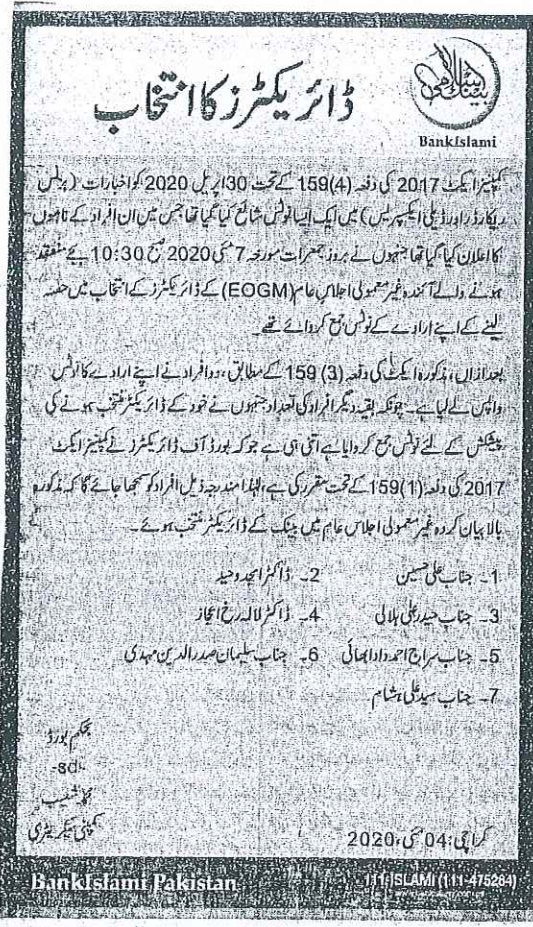 بینک اسلامی
BankIslami
ڈائریکٹرز کا انتخاب
کمپنیز ایکٹ 2017 کی دفعہ 159(4) کے تحت 30 اپریل 2020 کو اخبارات (بزنس
ریکارڈر اور ڈیلی ایکسپریس) میں ایک ایسا نوٹس شائع کیا گیا تھا جس میں ان افراد کے ناموں
کا اعلان کیا گیا تھا جنہوں نے بروز جمعرات مورخہ 7 مئی 2020 صبح 10:30 بجے منعقد
ہونے والے آئندہ غیر معمولی اجلاسِ عام (EOGM) کے ڈائریکٹرز کے انتخاب میں حصہ
لینے کے اپنے ارادے کے نوٹس جمع کروائے تھے۔
بعدازاں، مذکورہ ایکٹ کی دفعہ 159 (3) کے مطابق، دو افراد نے اپنے ارادے کا نوٹس
واپس لے لیا ہے۔ چونکہ بقیہ دیگر افراد کی تعداد جنہوں نے خود کے ڈائریکٹر منتخب ہونے کی
پیشکش کے لئے نوٹس جمع کروایا ہے اتنی ہی ہے جو کہ بورڈ آف ڈائریکٹرز نے کمپنیز ایکٹ
2017 کی دفعہ 159(1) کے تحت مقرر کی ہے، لہٰذا مندرجہ ذیل افراد کو سمجھا جائے گا کہ مذکورہ
بالا بیان کردہ غیر معمولی اجلاس عام میں بینک کے ڈائریکٹر منتخب ہوئے۔
1۔ جناب علی حسین 2۔ ڈاکٹر امجد وحید
3۔ جناب حیدر علی ہلالی 4۔ ڈاکٹر لالہ رخ اعجاز
5۔ جناب سراج احمد دادابھائی 6۔ جناب سلیمان صدرالدین مہدی
7۔ جناب سید علی ہشام
بحکم بورڈ
-sd-
محمد شعیب
کمپنی سیکریٹری
کراچی: 04 مئی، 2020
BankIslami Pakistan
111-ISLAMI (111-475264)